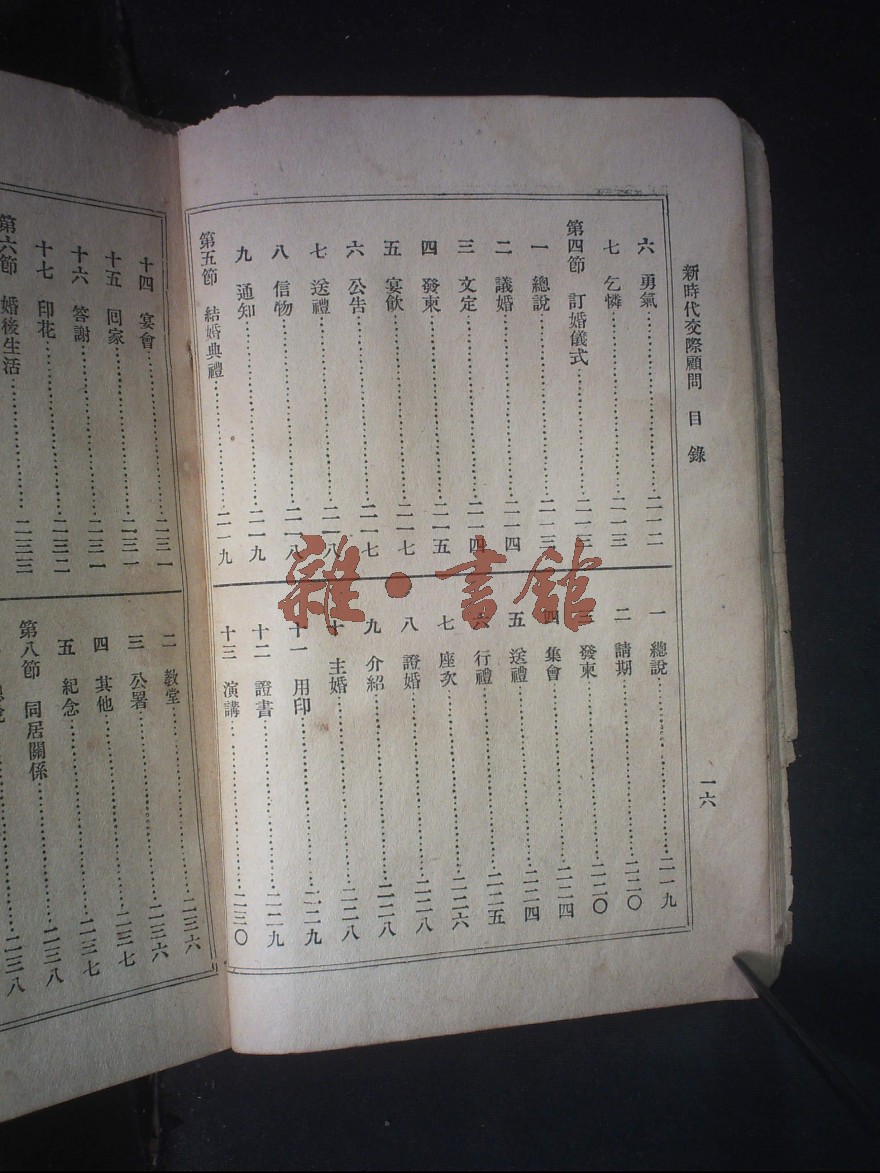 新時代交際顧問 目錄
一六
六 勇氣……二一二
七 乞憐……二一三
第四節 訂婚儀式……二一三
一 總說……二一三
二 議婚……二一四
三 文定……二一四
四 發柬……二一五
五 宴飲……二一七
六 公告……二一七
七 送禮……二一八
八 信物……二一八
九 通知……二一九
第五節 結婚典禮……二一九
一 總說……二一九
二 請期……二二〇
三 發柬……二二〇
四 集會……二二四
五 送禮……二二四
六 行禮……二二五
七 座次……二二六
八 證婚……二二八
九 介紹……二二八
十 主婚……二二八
十一 用印……二二九
十二 證書……二二九
十三 演講……二三〇
十四 宴會……二三一
十五 回家……二三一
十六 答謝……二三一
十七 印花……二三二
第六節 婚後生活……二三三
二 教堂……二三六
三 公署……二三六
四 其他……二三七
五 紀念……二三七
第八節 同居關係……二三八
二三八
雜·書館